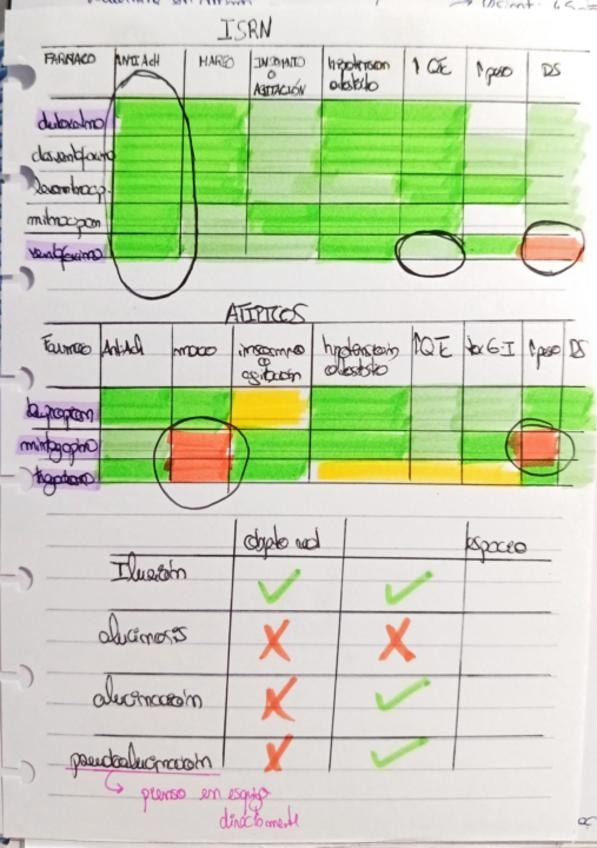 ISRN
FÁRMACO ANTIACH MAREO INSOMNIO O AGITACIÓN hipotensión ↑ QT ↑ peso DS
duloxetina
desvenlafaxina
levomilnacip.
milnacipan
venlafaxina
ATIPICOS
Fármaco AntiAch mareo insomnio o agitación hipotensión ↑QT tox G-I ↑peso DS
bupropion
mirtazapina
trazodona
objeto real espacio
Ilusión ✓ ✓
alucinosis X X
alucinación X ✓
pseudoalucinación X ✓
pienso en esquizo
directamente